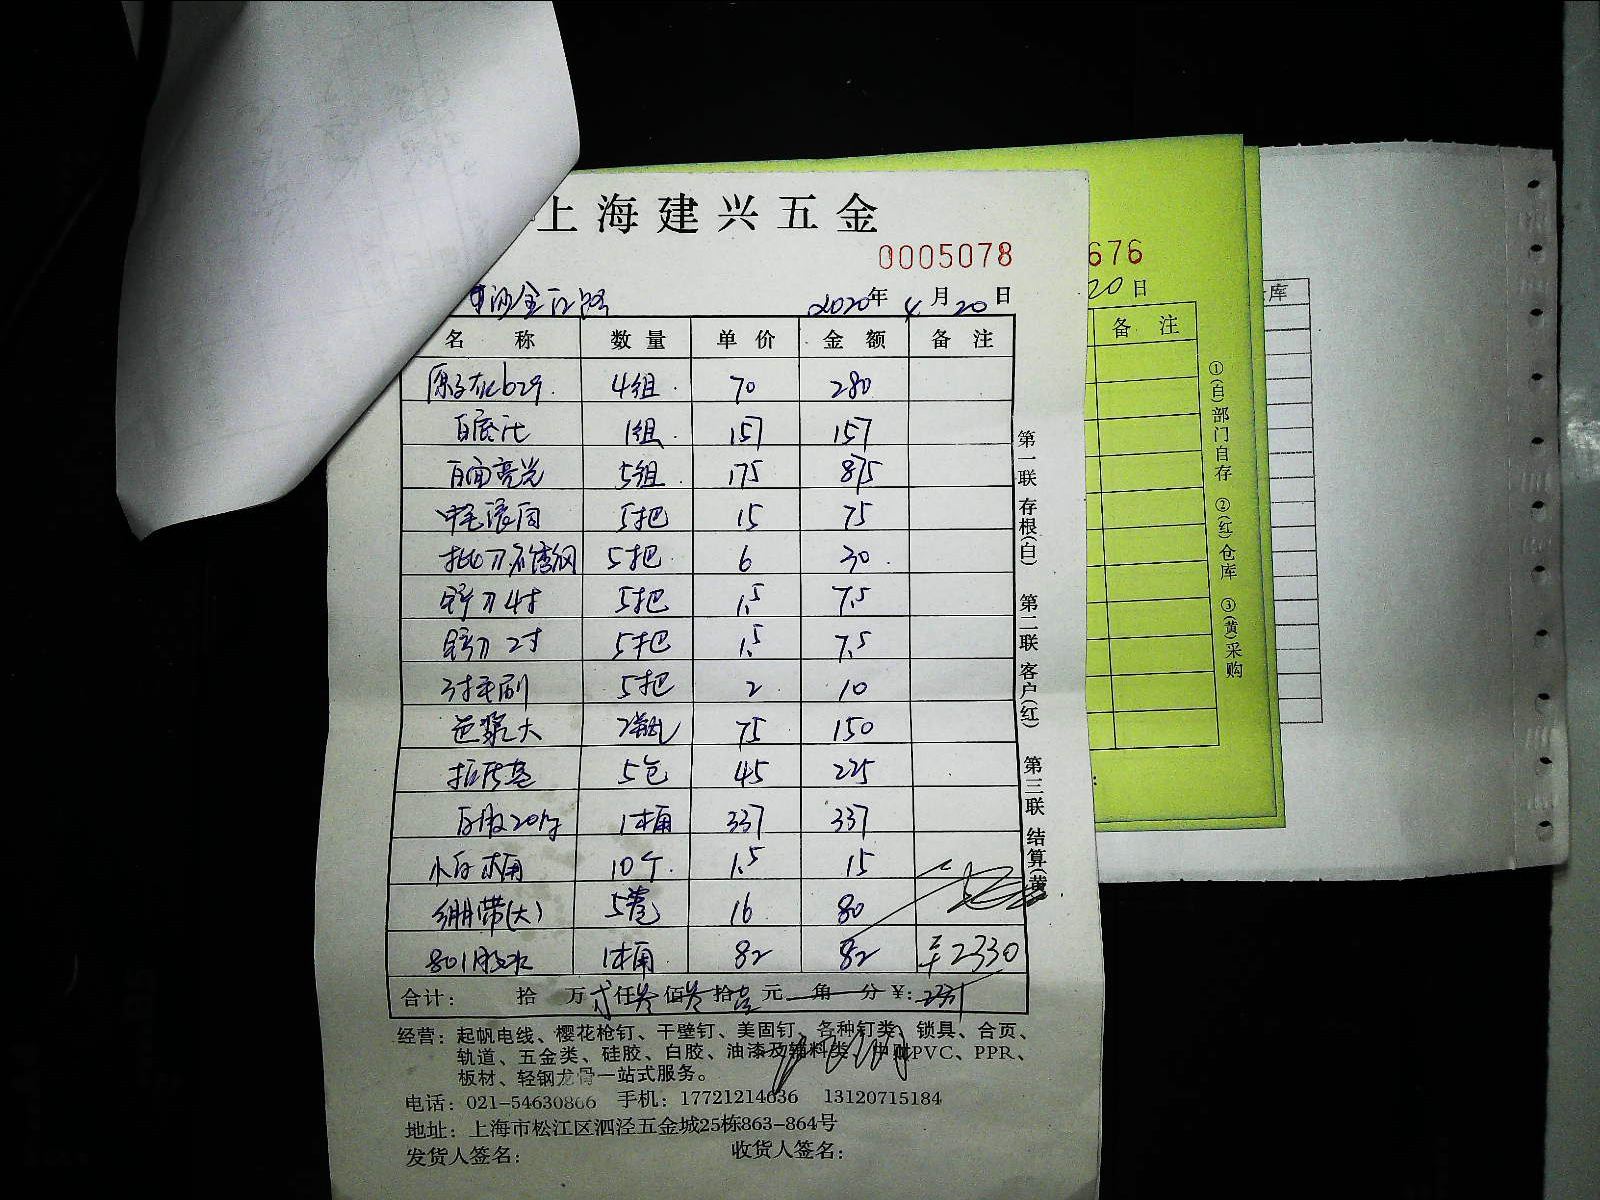 上海建兴五金
0005078
2020年4月20日
名 称 数量 单价 金额 备注
4组 70 280
白底漆 1组 157 157
白面亮光 5组 175 875
中毛滚筒 5把 15 75
批刀不锈钢 5把 6 30
铲刀4寸 5把 1.5 7.5
铲刀2寸 5把 1.5 7.5
3寸毛刷 5把 2 10
色浆大 2瓶 75 150
5包 45 225
白胶20kg 1桶 337 337
小白桶 10个 1.5 15
绷带(大) 5卷 16 80
801胶水 1桶 82 82 ¥2330
合计: 拾 万 贰仟叁佰叁拾壹元 角 分 ¥:2331
经营:起帆电线、樱花枪钉、干壁钉、美固钉、各种钉类、锁具、合页、
轨道、五金类、硅胶、白胶、油漆及辅料类、中财PVC、PPR、
板材、轻钢龙骨一站式服务。
电话:021-54630866 手机:17721214636 13120715184
地址:上海市松江区泗泾五金城25栋863-864号
发货人签名: 收货人签名:
第一联 存根(白) 第二联 客户(红) 第三联 结算(黄)
676
20日
备 注
①(白)部门自存 ②(红)仓库 ③(黄)采购
库